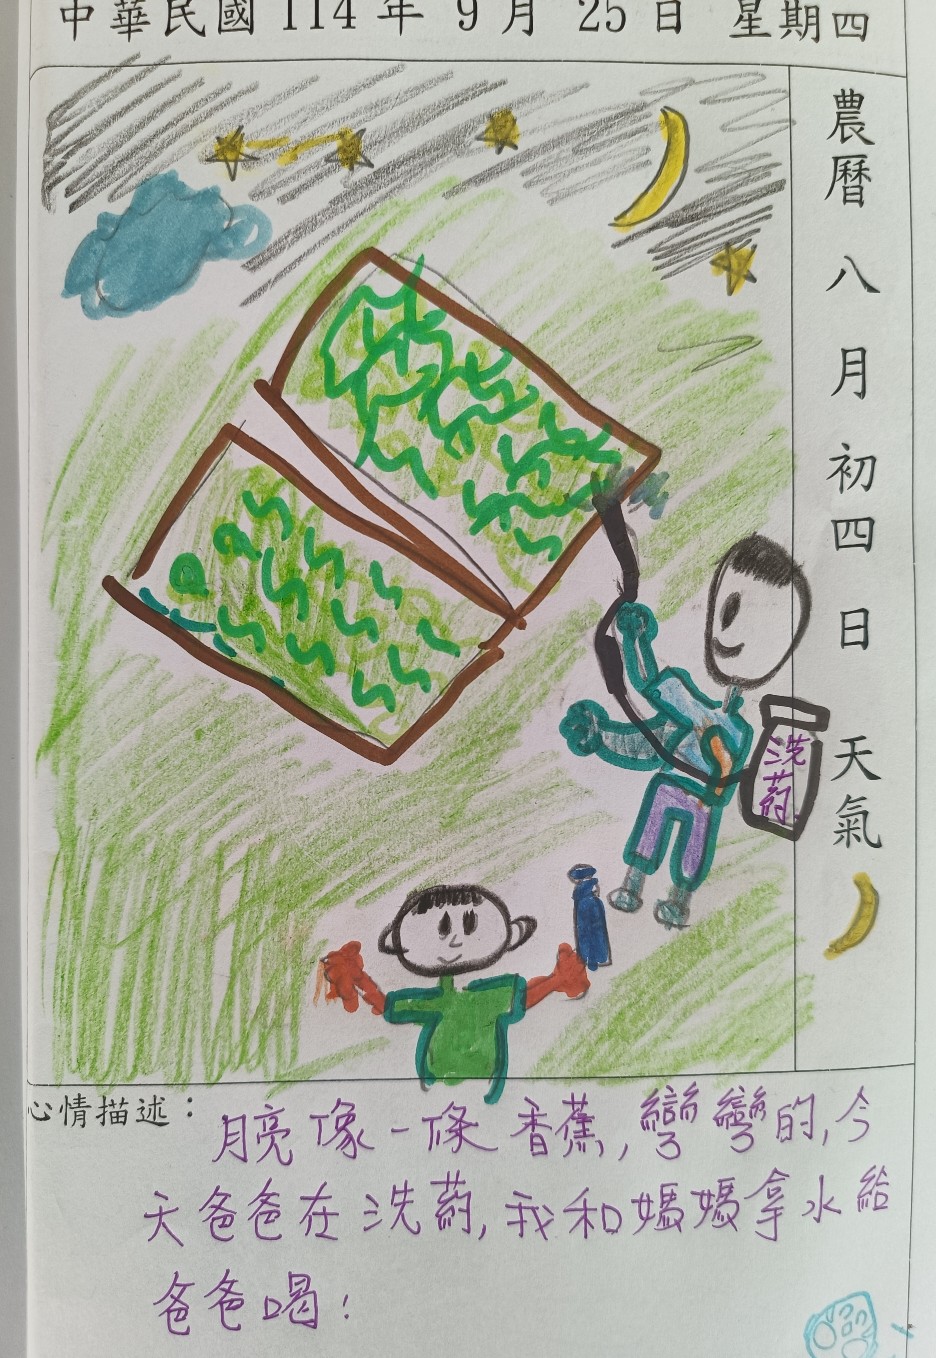 中華民國 114 年 9 月 25 日 星期四
農曆 八月初四日 天氣
洗葯
心情描述：月亮像一條香蕉,彎彎的,今
天爸爸在洗葯,我和媽媽拿水給
爸爸喝!